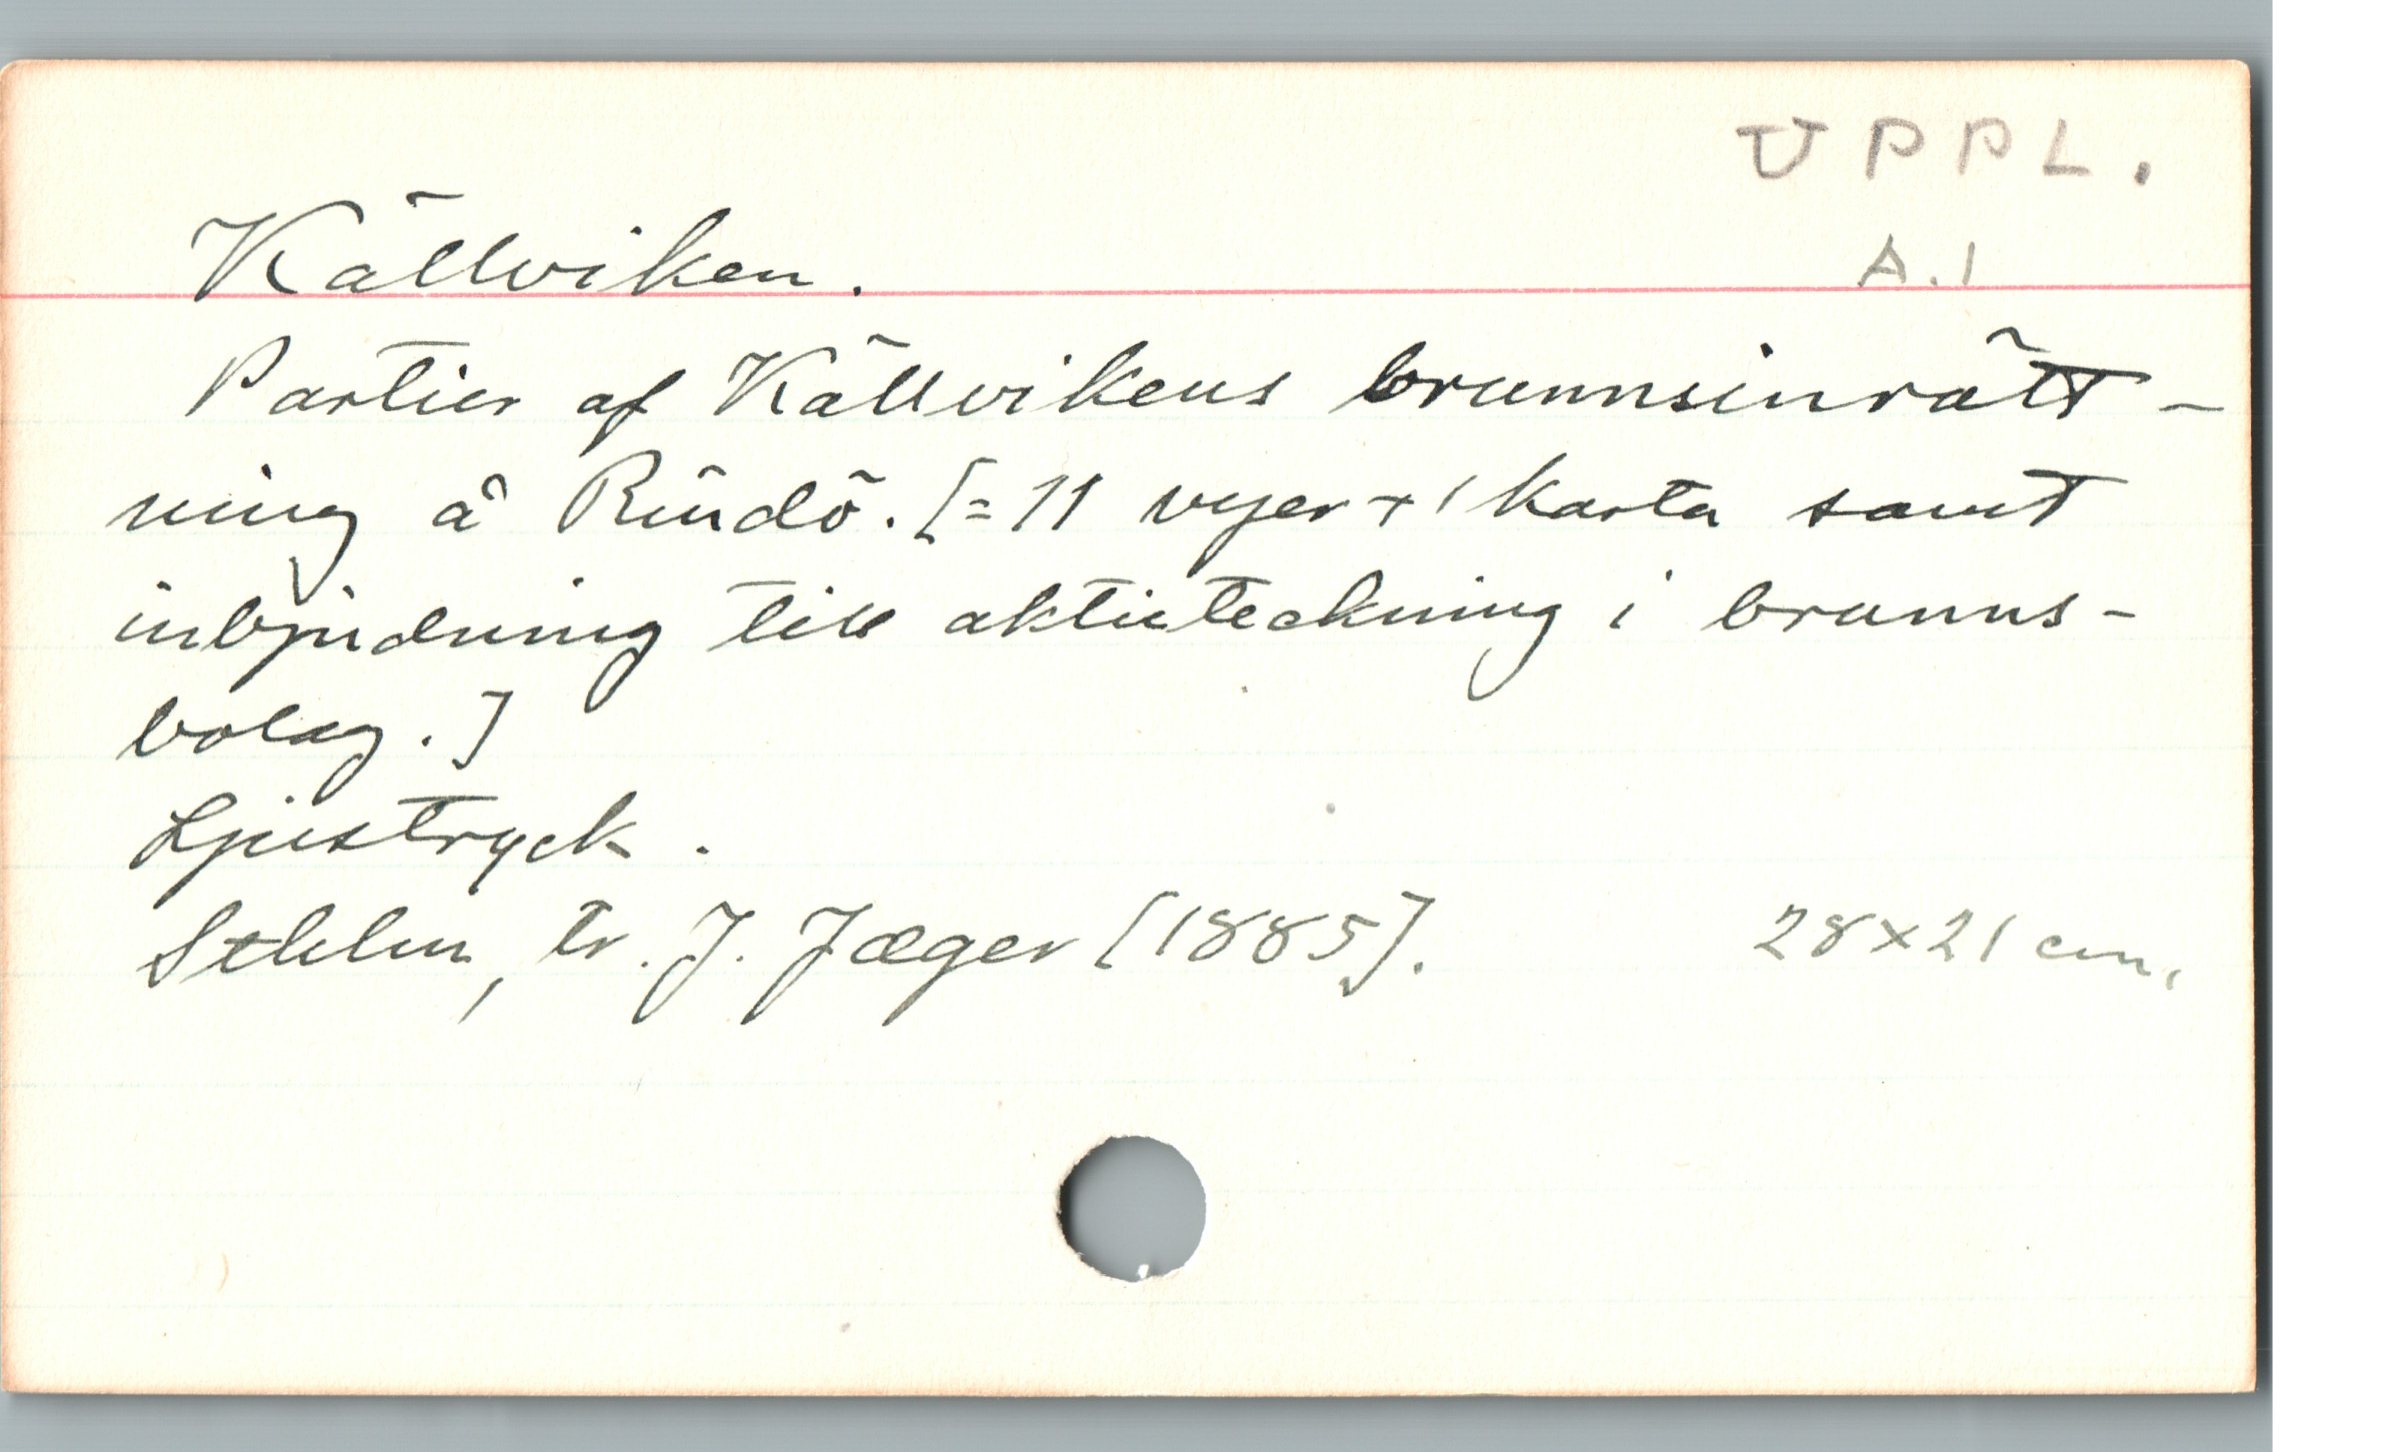 UPPL.
A.1
Källviken.
Partier af Källvikens brunnsinrätt-
ning å Rindö. [= 11 vyer + 1 karta samt
inbjudning till aktieteckning i brunns-
bolag.]
Ljustryck.
Sthlm, tr. J. Jæger [1885]. 28x21 cm.